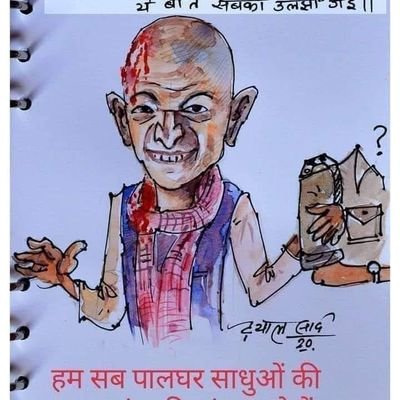 ये बात सबको उलझा गई।।
?
दयाल
20.
हम सब पालघर साधुओं की